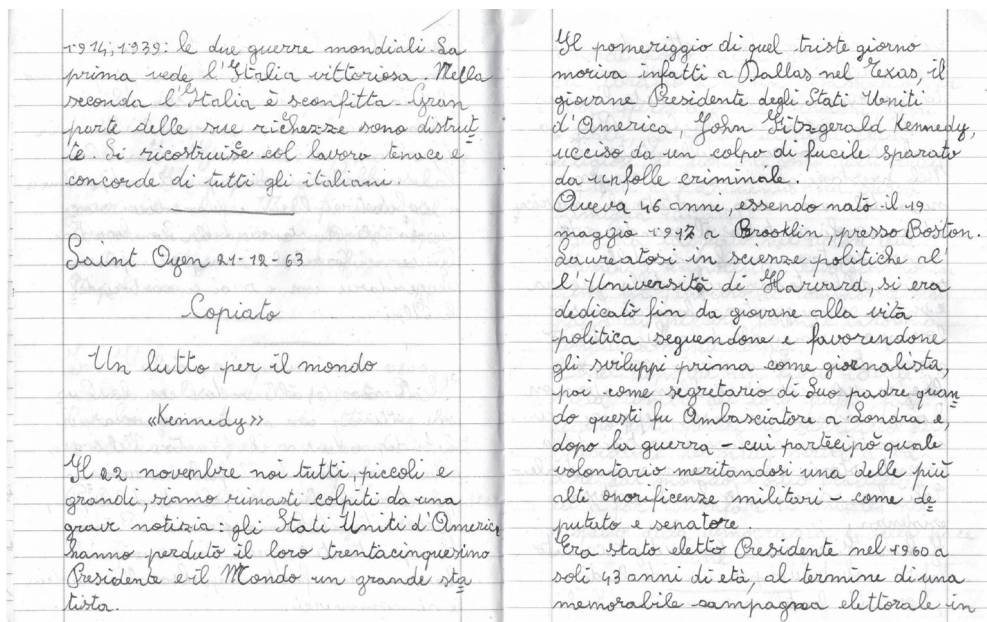 1914; 1939: le due guerre mondiali. La
prima vede l'Italia vittoriosa. Nella
seconda l'Italia è sconfitta. Gran
parte delle sue richezze sono distrut=
te. Si ricostruise col lavoro tenace e
concorde di tutti gli italiani.
Saint Oyen 21-12-63
Copiato
Un lutto per il mondo
«Kennedy»
Il 22 novembre noi tutti, piccoli e
grandi, siamo rimasti colpiti da una
grave notizia: gli Stati Uniti d'America
hanno perduto il loro trentacinquesimo
Presidente e il Mondo un grande sta=
tista.
Il pomeriggio di quel triste giorno
moriva infatti a Dallas nel Texas, il
giovane Presidente degli Stati Uniti
d'America, John Fitzgerald Kennedy,
ucciso da un colpo di fucile sparato
da un folle criminale.
Aveva 46 anni, essendo nato il 19
maggio 1917 a Brooklin, presso Boston.
Laureatosi in scienze politiche al
l'Università di Harvard, si era
dedicato fin da giovane alla vita
politica seguendone e favorendone
gli sviluppi prima come giornalista,
poi come segretario di suo padre quan=
do questi fu Ambasciatore a Londra e,
dopo la guerra - cui partecipò quale
volontario meritandosi una delle più
alte onorificenze militari - come de=
putato e senatore.
Era stato eletto Presidente nel 1960 a
soli 43 anni di età, al termine di una
memorabile campagna elettorale in